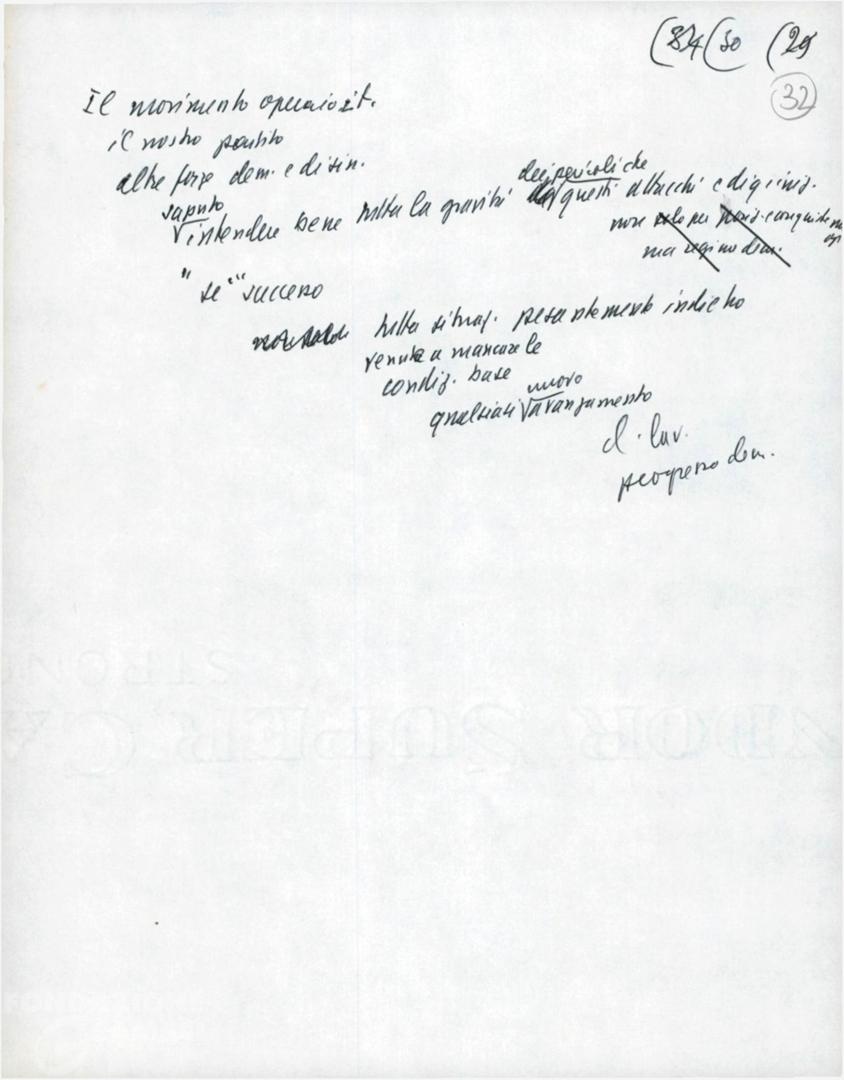 (84 (30 (29
32
Il movimento operaio it.
il nostro partito
altre forze dem. e di sin.
saputo
intendere bene tutta la gravità dei pericoli che questi attacchi e di q. iniz.
non solo per posiz. e conquiste
ma regime dem.
"se" successo
tutta situaz. pesantemente indietro
venute a mancare le
condiz. base
qualsiasi nuovo avanzamento
cl. lav.
progresso dem.